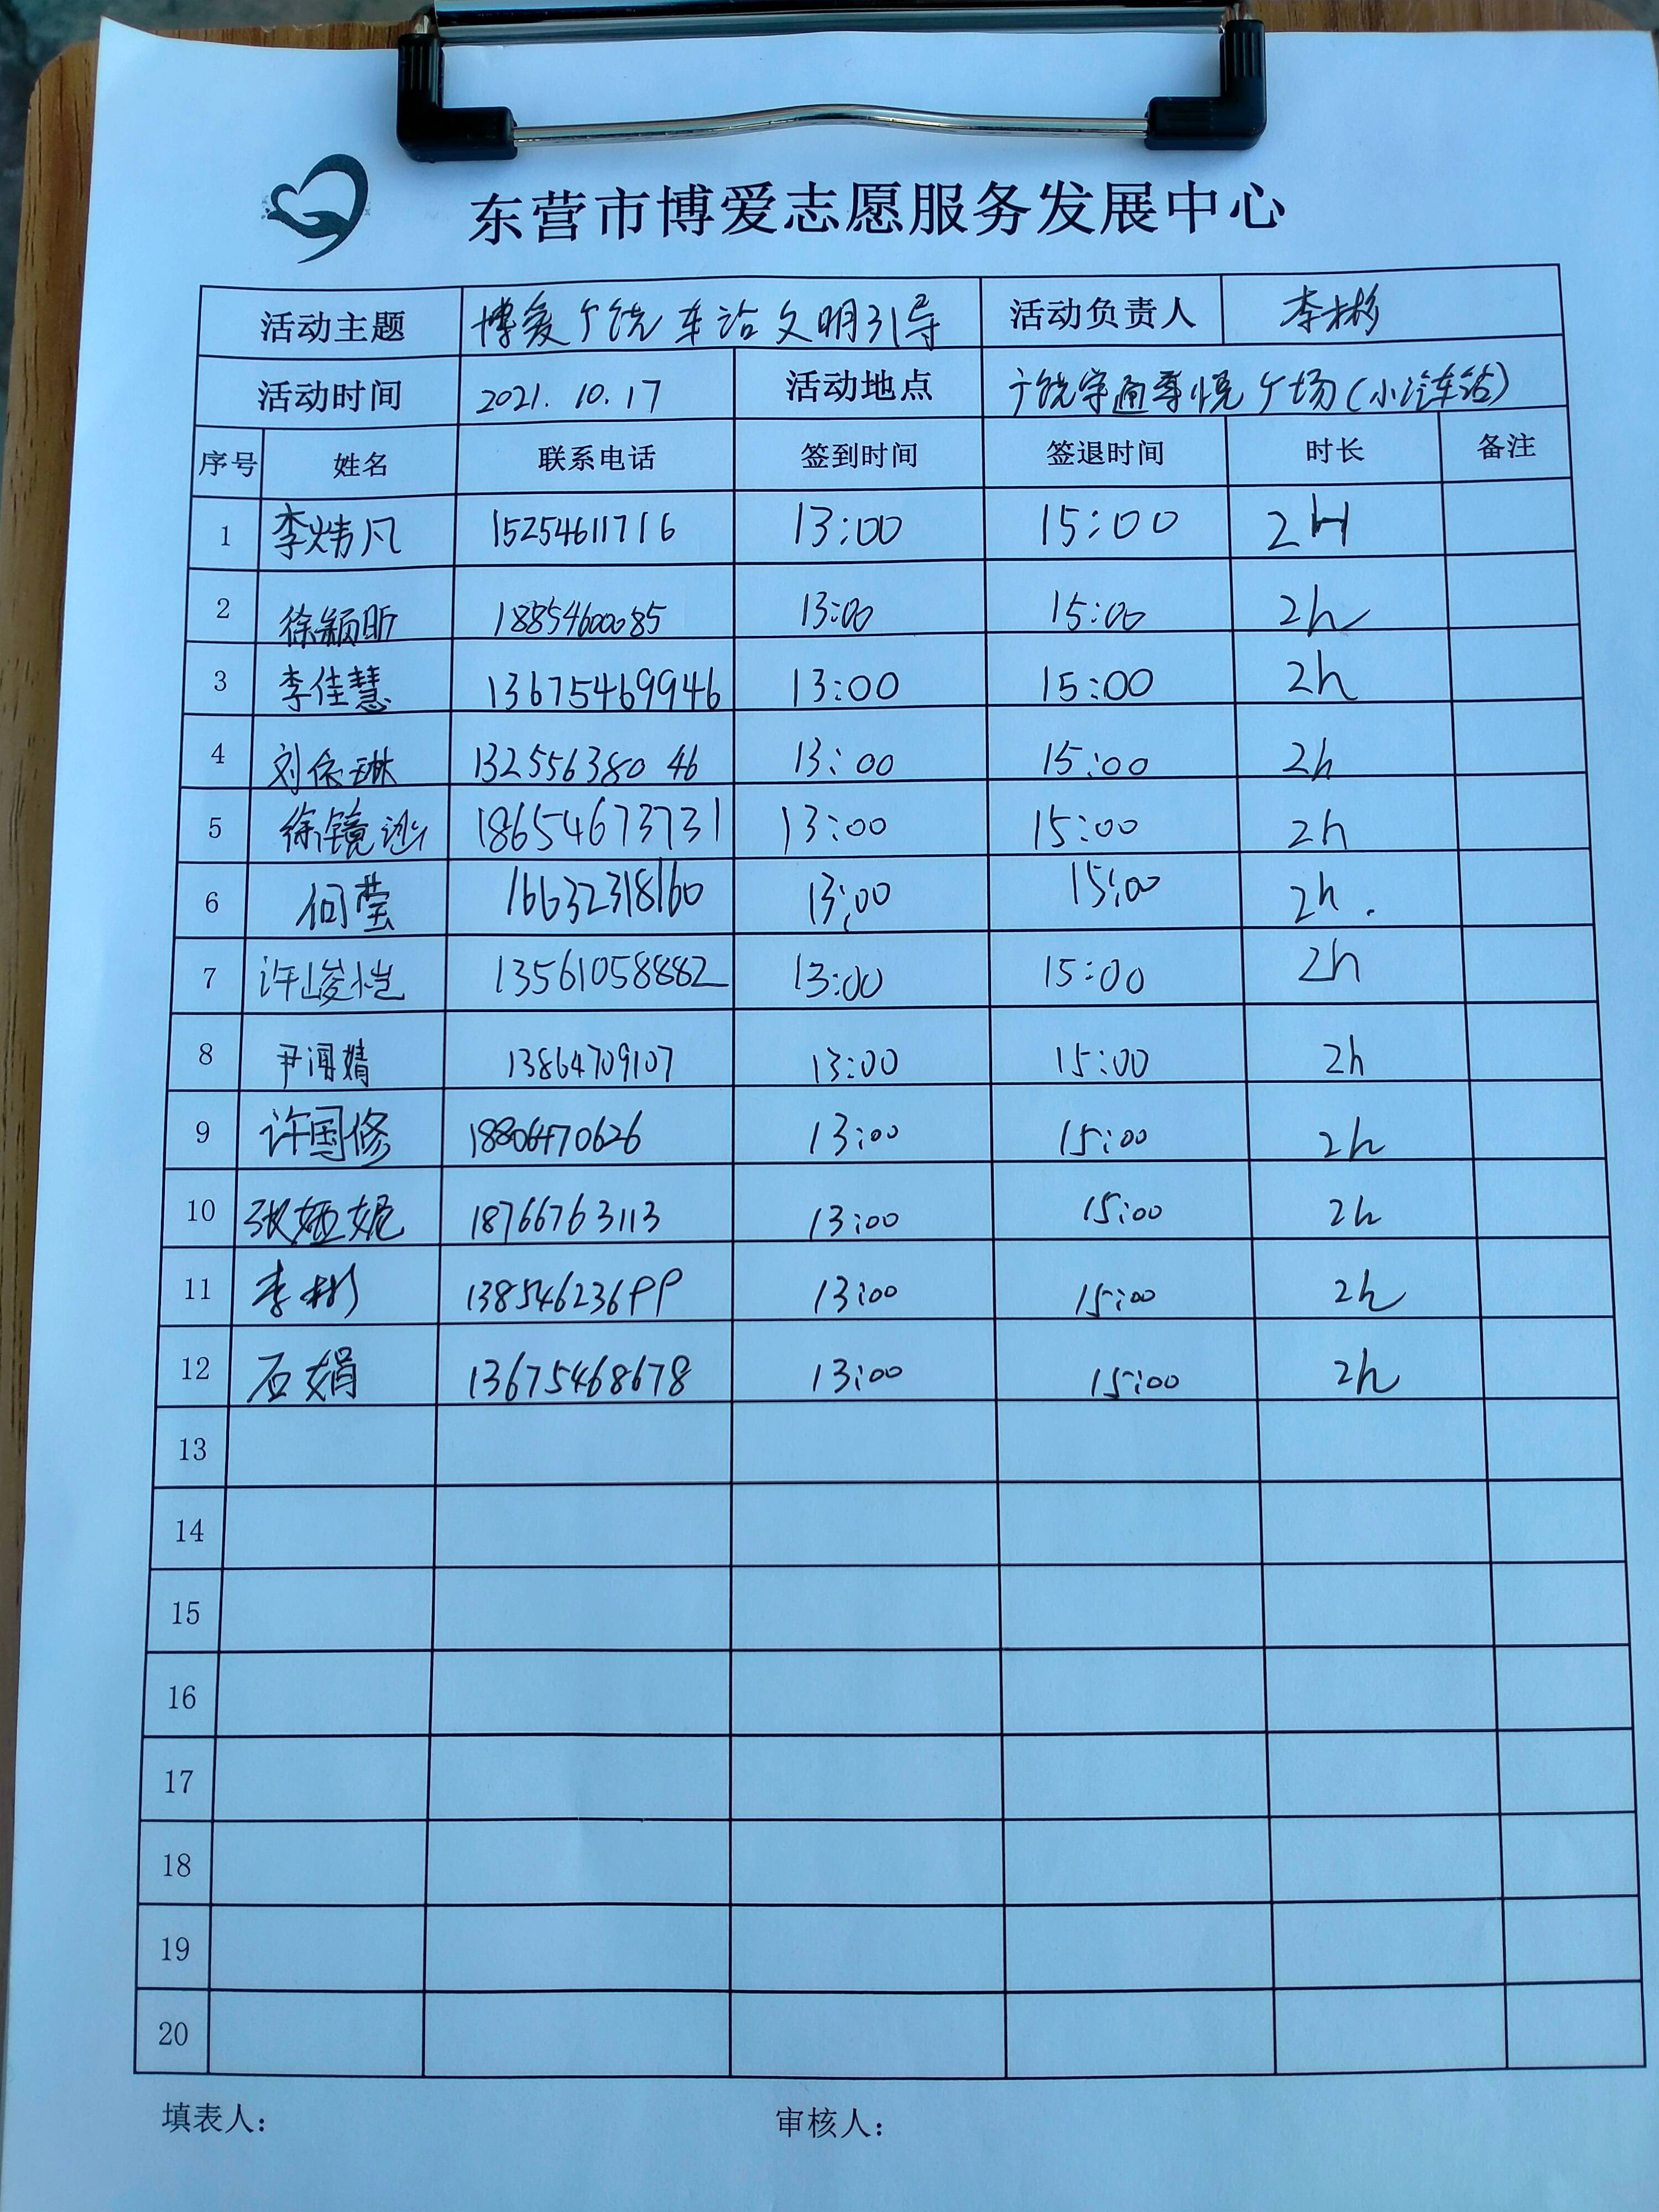 东营市博爱志愿服务发展中心
活动主题 博爱广饶车站文明引导 活动负责人 李彬
活动时间 2021.10.17 活动地点 广饶宇通尊悦广场(小汽车站)
序号 姓名 联系电话 签到时间 签退时间 时长 备注
1 李炜凡 15254611716 13:00 15:00 2H
2 徐颖昕 18854600085 13:00 15:00 2h
3 李佳慧 13675469946 13:00 15:00 2h
4 刘依琳 13255638046 13:00 15:00 2h
5 徐镜 18654673731 13:00 15:00 2h
6 何莹 16632318160 13:00 15:00 2h.
7 许峻恺 13561058882 13:00 15:00 2h
8 尹闻婧 13864709107 13:00 15:00 2h
9 许国修 18806470626 13:00 15:00 2h
10 张娅妮 18766763113 13:00 15:00 2h
11 李彬 13854623699 13:00 15:00 2h
12 石娟 13675468678 13:00 15:00 2h
13
14
15
16
17
18
19
20
填表人: 审核人: